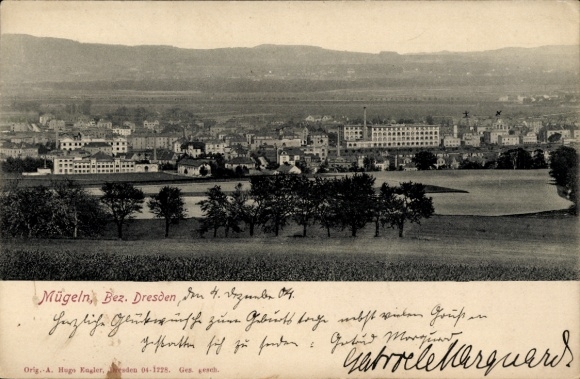 Mügeln, Bez. Dresden, den 4. Dezember 04.
Herzliche Glückwünsche zum Geburtstage nebst vielen Grüßen
gestatten sich zu senden:
Gabriele Marquardt
Orig.-A. Hugo Engler, Dresden 04-1228. Ges. gesch.